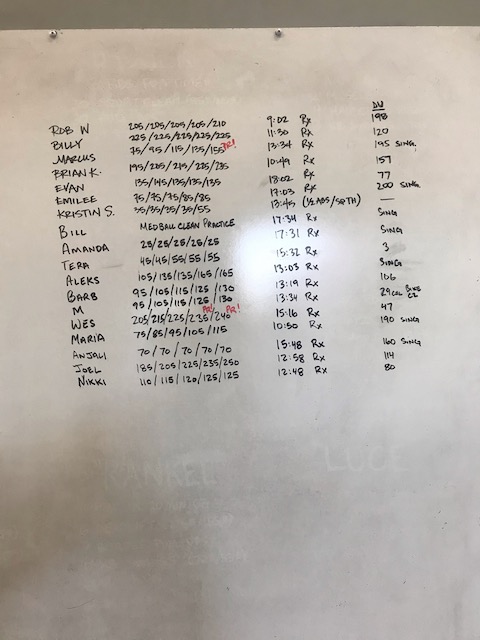 DU
ROB W 205/205/205/205/210 9:02 Rx 198
BILLY 225/225/225/225/225 11:30 Rx 120
MARCUS 75/95/115/135/155 PR! 13:34 Rx 195 SING.
BRIAN K. 195/205/215/225/235 10:49 Rx 157
EVAN 135/145/135/135/135 18:02 Rx 77
EMILEE 75/75/75/85/85 17:03 Rx 200 SING.
KRISTIN S. 35/35/35/35/55 13:45 (1/2 ABS/SQTH) —
BILL MEDBALL CLEAN PRACTICE 17:34 Rx SING
AMANDA 25/25/25/25/25 17:31 Rx SING
TERA 45/45/55/55/55 15:32 Rx 3
ALEKS 105/135/135/165/165 13:03 Rx SING
BARB 95/105/115/125/130 13:19 Rx 106
M 95/105/115/125/130 13:34 Rx 29 CAL BIKE
WES 205/215/225/235/240 PR! PR! 15:16 Rx 47
MARIA 75/85/95/105/115 10:50 Rx 190 SING
ANJALI 70/70/70/70/70 15:48 Rx 160 SING
JOEL 185/205/225/235/250 12:58 Rx 114
NIKKI 110/115/120/125/125 12:48 Rx 80
LUCE